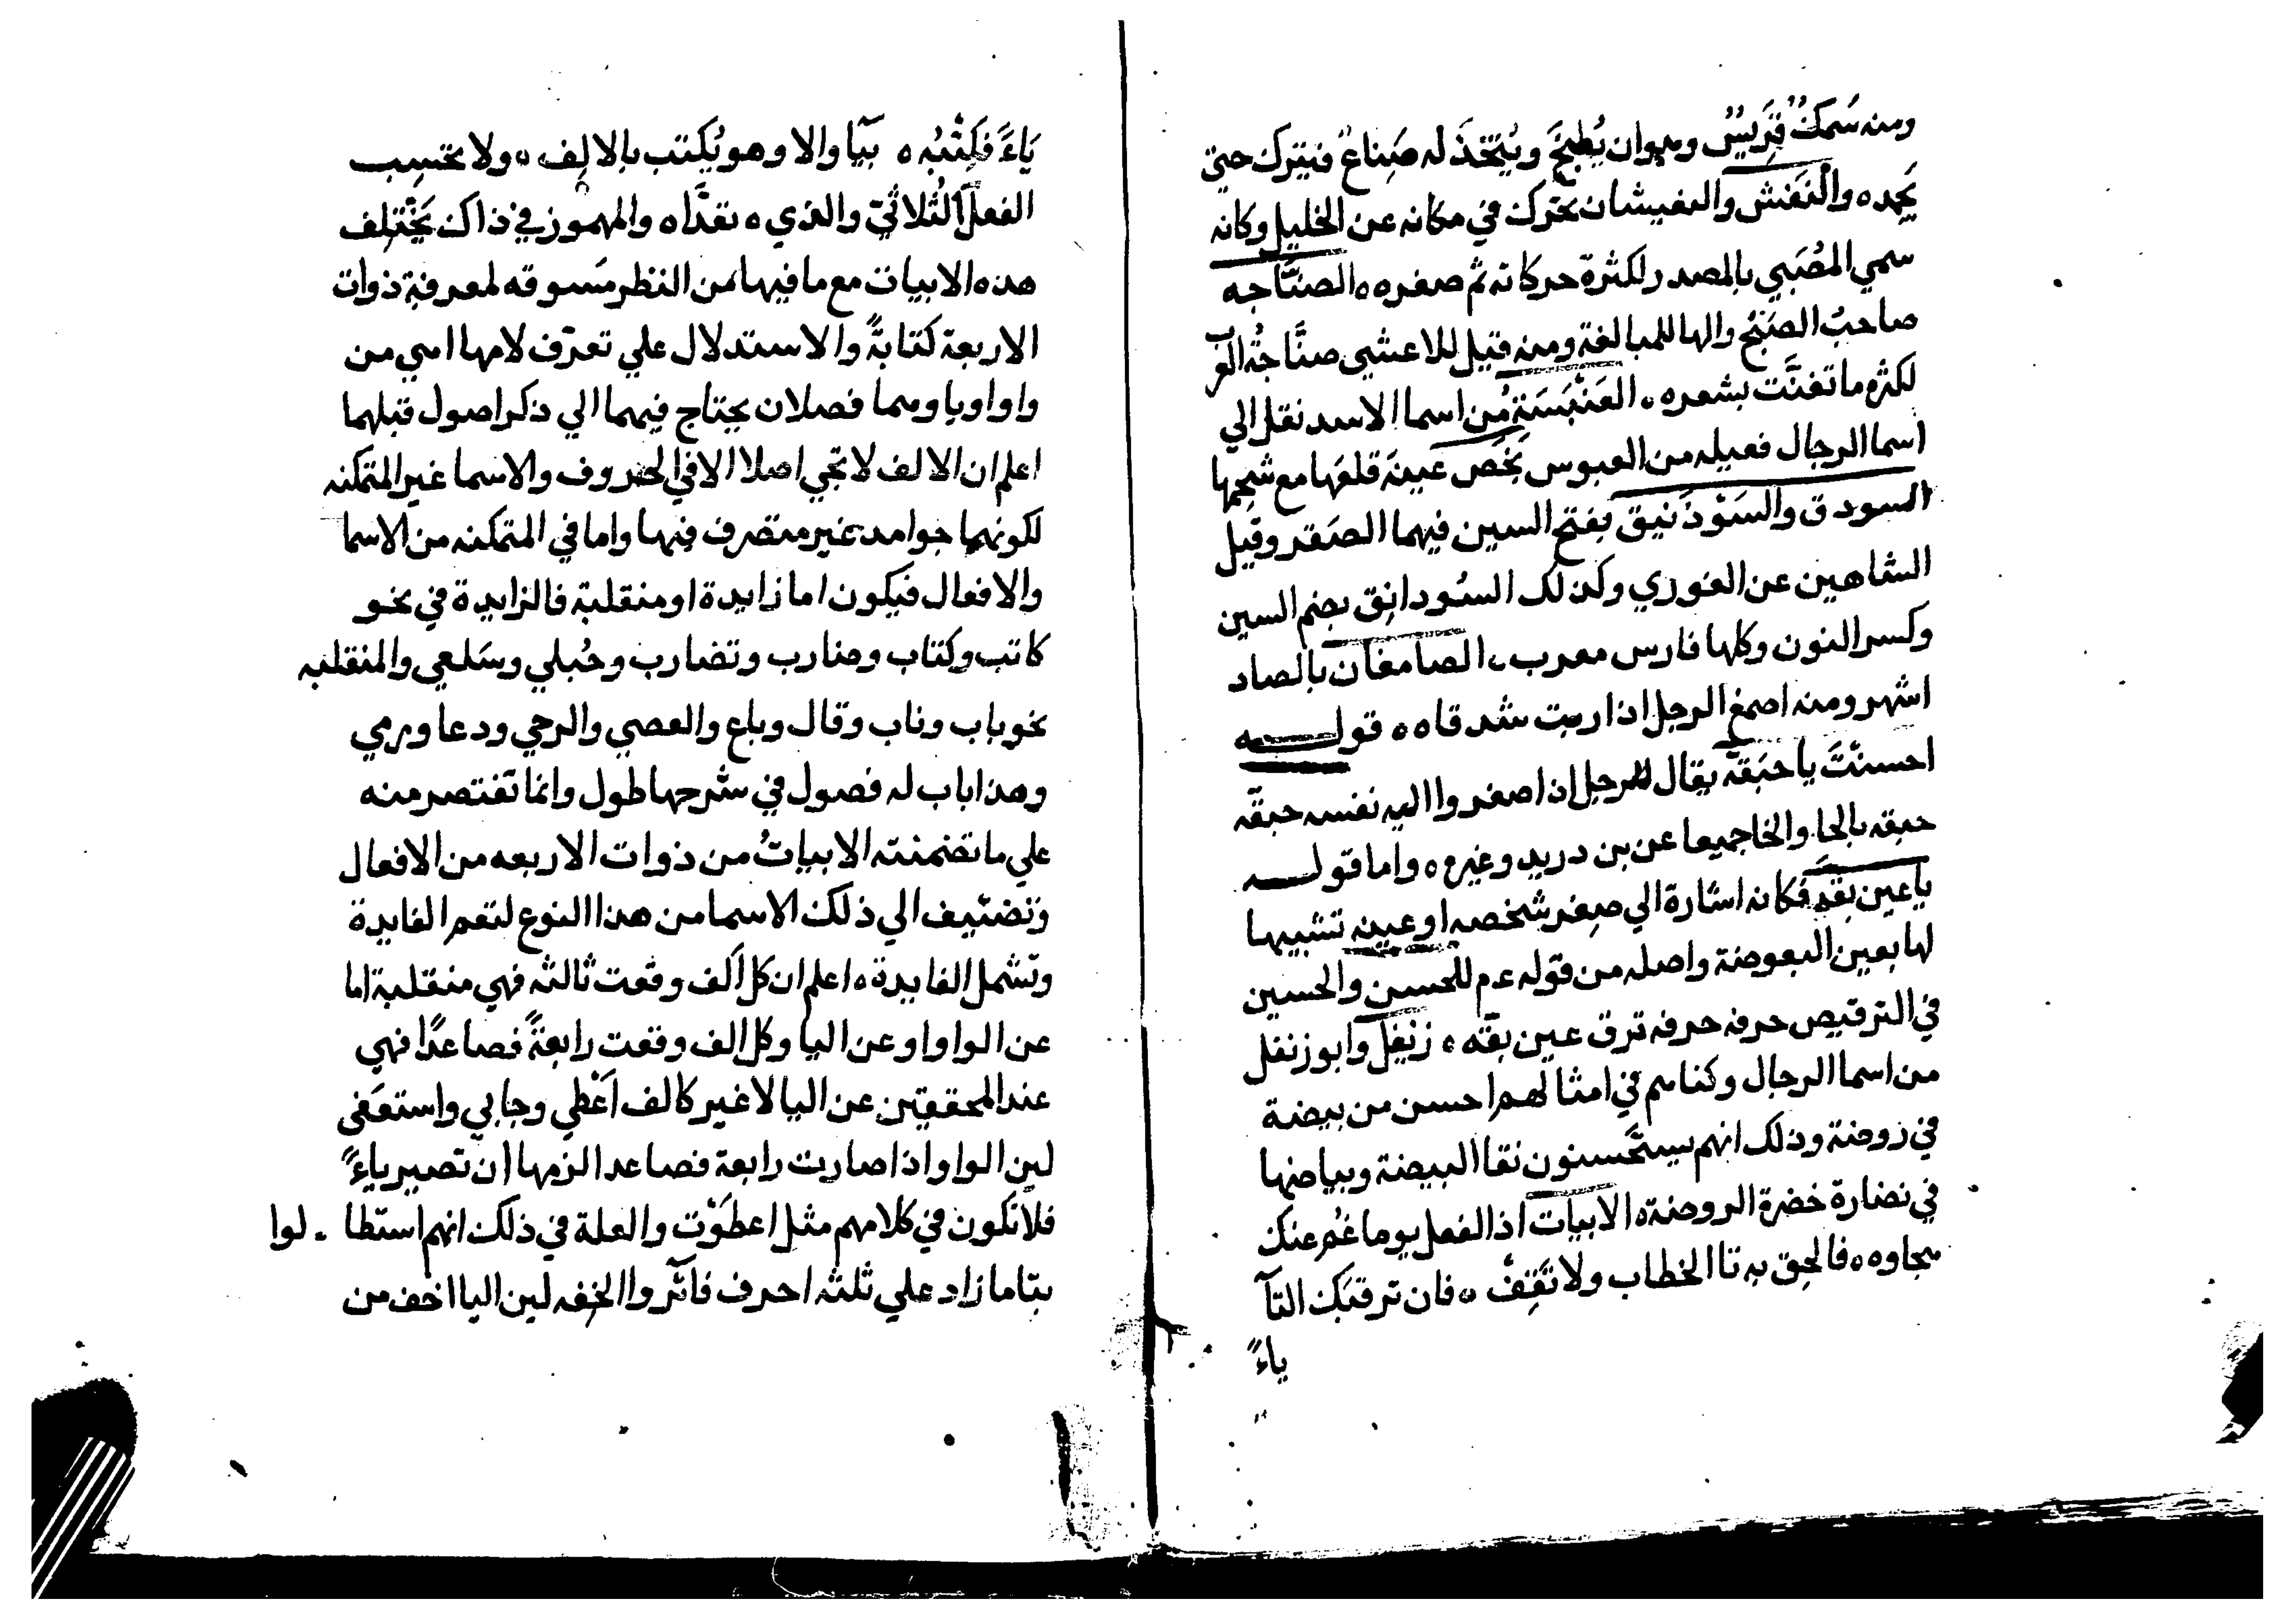 ومنه سَمَكٌ قَرِيسٌ وهو ان يُطبخَ ويُتّخذَ له صَباغٌ فيترك حتى
يَجمده والنَفَش والنغيشان تحرك في مكانه عن الخليل وكانه
سمي الصَبي بالمصدر لكثرة حركاته ثم صغره ه الصنّاجه
صاحبُ الصَنج والها للمبالغة ومنه قيل للاعشي صنّاجة العرب
لكثره ما تغنَّت بشعره ه العَنْبَسَة من اسما الاسد نقل الي
اسما الرجال فعيله من العبوس بَخَص عينَه قلعَها مع شحمها
السودق والسَوْذَنيق بفتح السين فيهما الصَقر وقيل
الشاهين عن الغوري وكذلك السُودانِق بضم السين
وكسر النون وكلها فارس معرب ه الصامغان بالصاد
اشهر ومنه اصمغ الرجل اذا ربت شدقاه ه قوله
احسنْتَ يا حبَقّه يقال للرجل اذا صغروا اليه نفسه حبقّه
حبقه بالحا والخا جميعا عن بن دريد وغيره ه واما قوله
يا عين بقّه فكانه اشارة الي صِغر شخصه او عينه تشبيها
لها بعين البعوضة واصله من قوله عم للحسن والحسين
في الترقيص حزقه حزقه ترق عين بقّه ه زنفل وابو زنفل
من اسما الرجال وكناهم في امثالهم احسن من بيضة
في روضة وذلك انهم يستَحسنون نقا البيضة وبياضها
في نضارة خضرة الروضة ه الابيات اذا الفعل يوما غُم عنك
هجاوه ه فالحِق به تا الخطاب ولا تَقِفْ ه فان تر قبَلَ التآ
ياءً
ياءً فكتْبُه ه بيَآ والا وهو يُكتب بالالِف ه ولا تحسِب
الفعلَ الثُلاثيّ والذي ه تعدَّاه والمهموز في ذاك يَخْتلِف
هذه الابيات مع ما فيها من النظر مَسوقه لمعرفة ذوات
الاربعة كتابةً والاستدلال علي تعرّف لامها اهي من
واو او يا وهما فصلان يحتاج فيهما الي ذكر اصول قبلهما
اعلم ان الالف لا تجي اصلا الا في الحروف والاسما غير المتمكنه
لكونهما جوامد غير متصرف فيها واما في المتمكنه من الاسما
والافعال فيكون اما زايدة او منقلبة فالزايدة في نحو
كاتب وكتاب وضارب وتضارب وحُبلي وسَلعي والمنقلبه
نحو باب وناب وقال وباع والعصي والرحي ودعا ورمي
وهذا باب له فصول في شرحها طول وانما نقتصر منه
علي ما تضمنته الابياتُ من ذوات الاربعه من الافعال
ونضيف الي ذلك الاسما من هذا النوع لتعم الفايدة
وتشمل الفايدة ه اعلم ان كل الف وقعت ثالثه فهي منقلبة اما
عن الواو او عن اليا وكل الف وقعت رابعةً فصاعدًا فهي
عند المحققين عن اليا لا غير كالف اَعْطي وجابي واستعفى
لين الواو اذا صارت رابعة فصاعدا لزمها ان تصير ياءً
فلا تكون في كلامهم مثل اعطَوْت والعلة في ذلك انهم استطا . لوا
بنا ما زاد علي ثلثه احرف فاثروا الخفه لين اليا اخف من